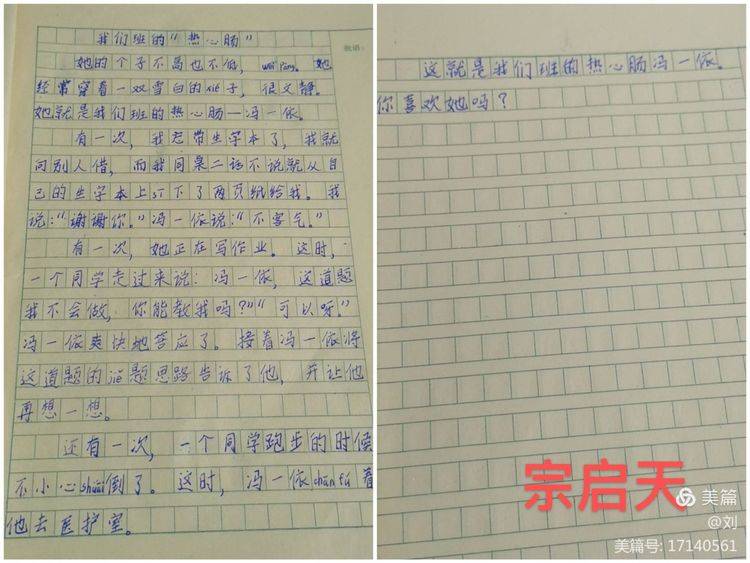 我们班的“热心肠”
批语：
她的个子不高也不低，wēi pàng。她
经常穿着一双雪白的xié子，很文静。
她就是我们班的热心肠—冯一依。
有一次，我忘带生字本了，我就
问别人借，而我同桌二话不说就从自
己的生字本上sī下了两页纸给我。我
说：“谢谢你。”冯一依说：“不客气。”
有一次，她正在写作业。这时，
一个同学走过来说：冯一依，这道题
我不会做，你能教我吗？”“可以呀。”
冯一依爽快地答应了。接着冯一依将
这道题的题思路告诉了他，并让他
再想一想。
还有一次，一个同学跑步的时候
不小心shuāi倒了。这时，冯一依chān fú着
他去医护室。
这就是我们班的热心肠冯一依。
你喜欢她吗？
宗启天
美篇
@刘
美篇号: 17140561